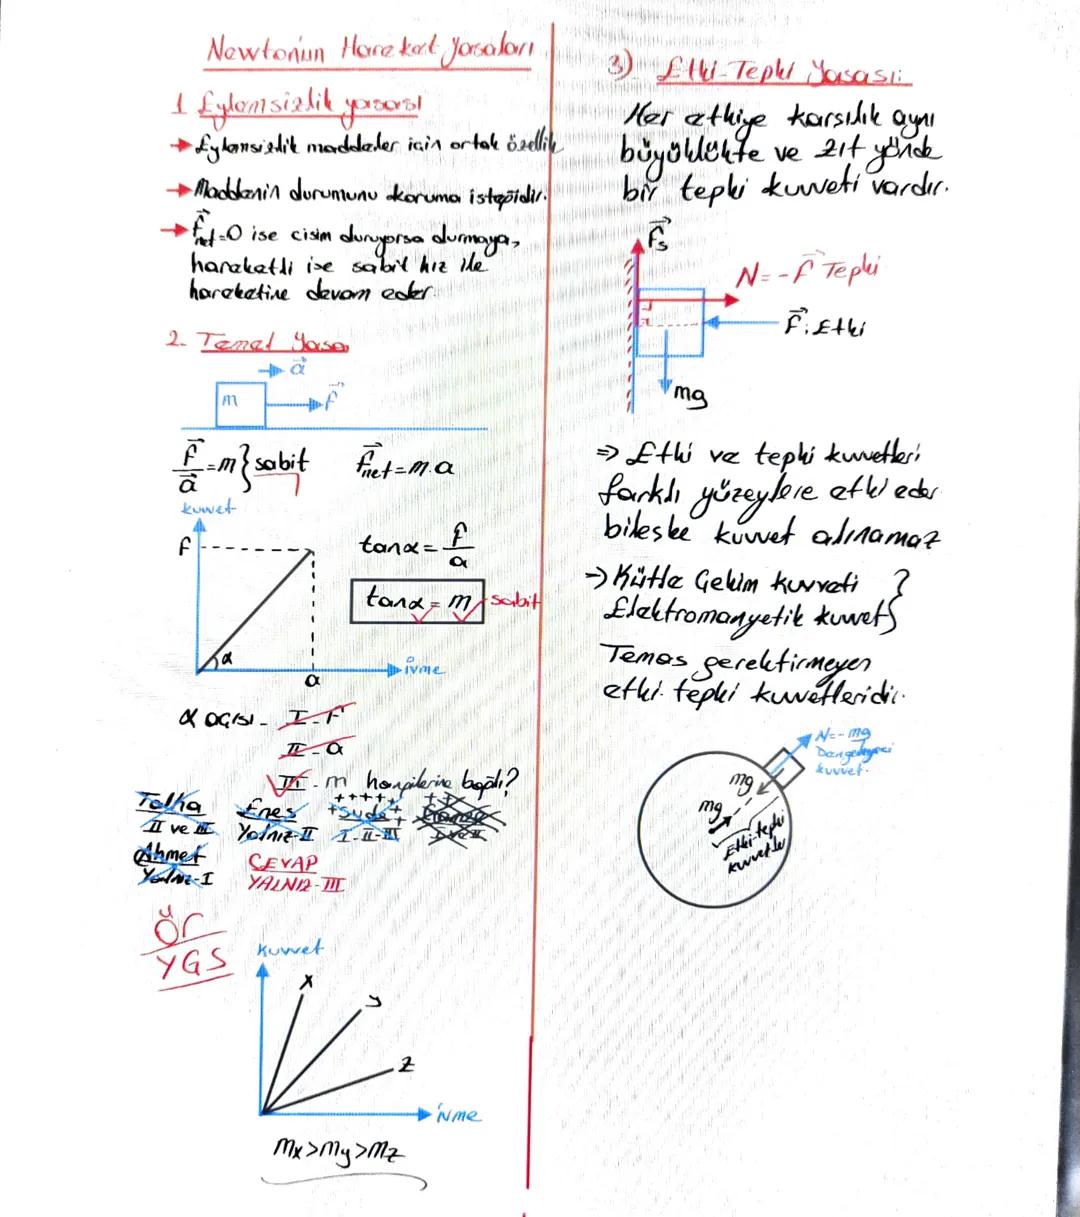 Newton'un Hareket Yasaları
1 Eylemsizlik yasası
→ Eylemsizlik maddeler için ortak özellik
→ Maddenin durumunu koruma isteğidir.
→ F⃗net=0 ise cisim duruyorsa durmaya,
hareketli ise sabit hız ile
hareketine devam eder
2. Temel Yasa
a⃗
m
F⃗
F⃗/a⃗=m} sabit
F⃗net=m.a
kuvvet
F
tanα=F/a
tanα=m sabit
α
ivme
a
α açısı - I-F
II-a
III-m hangilerine bağlı?
Talha
II ve III
Enes
Yalnız-II
+++++
+Sude+
I-II-III
++
Ahmet
Yalnız-I
CEVAP
YALNIZ-III
Ör
YGS
Kuvvet
x
y
z
ivme
mx>my>mz
3) Etki-Tepki Yasası:
Her etkiye karsılık aynı
büyüklükte ve zıt yönde
bir tepki kuvveti vardır.
F⃗s
N=-F⃗ Tepki
F⃗:Etki
mg
⇒ Etki ve tepki kuvvetleri
farklı yüzeylere etki eder
bileske kuvvet alınamaz
→ Kütle Çekim kuvveti
Elektromanyetik kuvvet}
Temas gerektirmeyen
etki tepki kuvvetleridir.
N=-mg
Dengeleyici
kuvvet.
mg
mg
Etki-tepki
kuvvetler